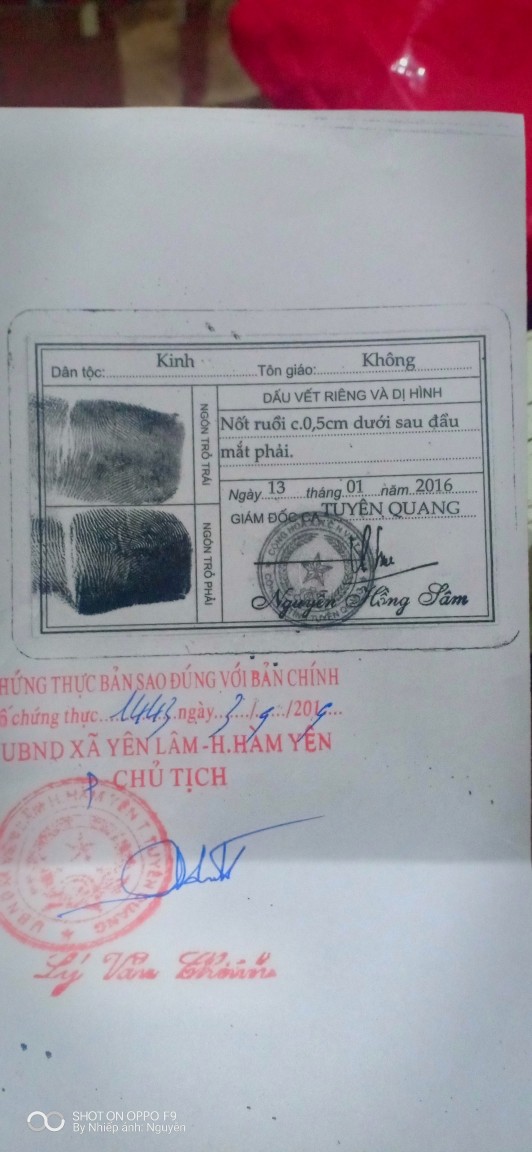 Dân tộc: Kinh Tôn giáo: Không
NGÓN TRỎ TRÁI
NGÓN TRỎ PHẢI
DẤU VẾT RIÊNG VÀ DỊ HÌNH
Nốt ruồi c.0,5cm dưới sau đầu
mắt phải.
Ngày 13 tháng 01 năm 2016
GIÁM ĐỐC CA TUYÊN QUANG
Nguyễn Hồng Sâm
HỨNG THỰC BẢN SAO ĐÚNG VỚI BẢN CHÍNH
ố chứng thực 1443 ngày 3/9/2019
UBND XÃ YÊN LÂM-H.HÀM YÊN
CHỦ TỊCH
Lý Văn
SHOT ON OPPO F9
By Nhiếp ảnh: Nguyên